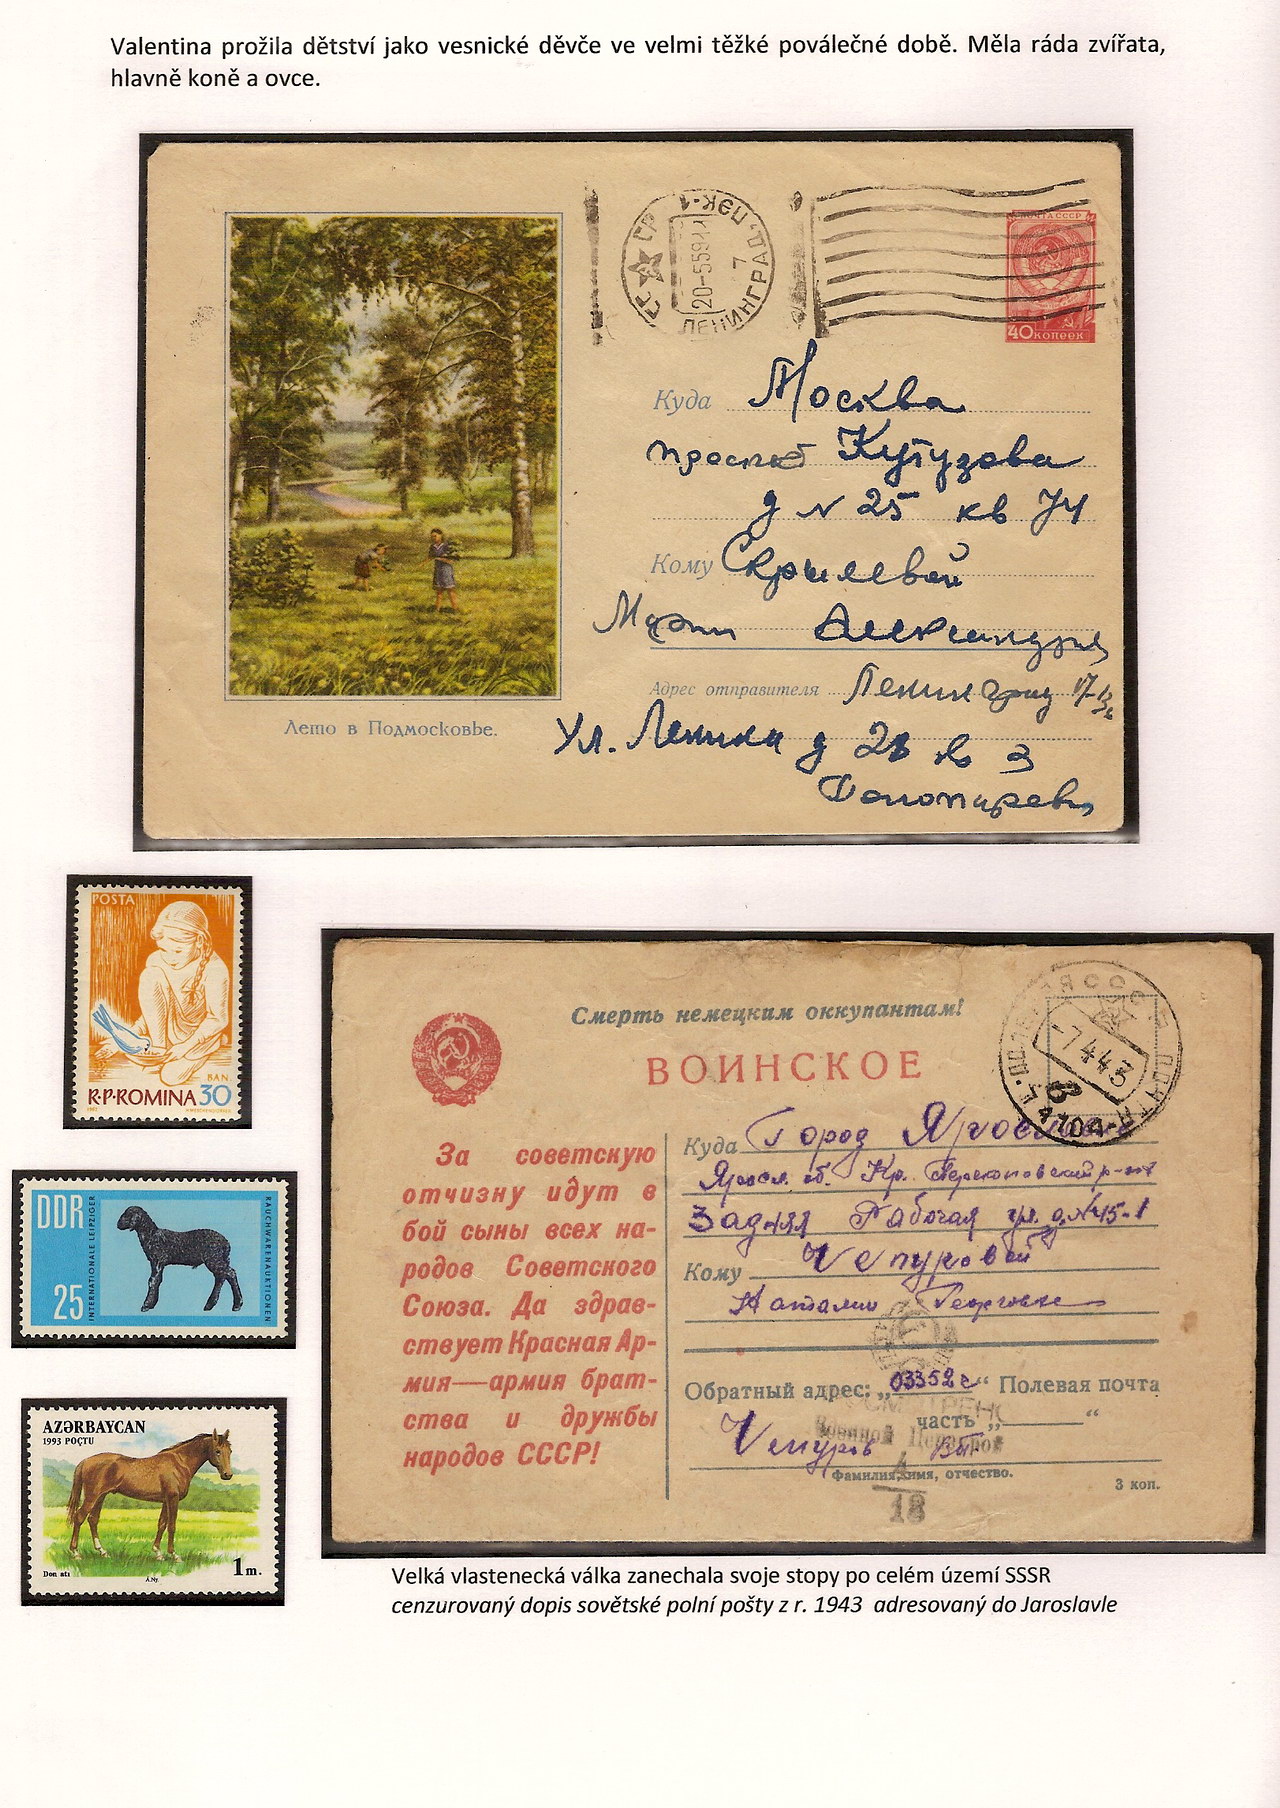 Valentina prožila dětství jako vesnické děvče ve velmi těžké poválečné době. Měla ráda zvířata,
hlavně koně a ovce.
ЛЕНИНГРАД
20-5 59
7
ПОЧТА СССР
40 КОПЕЕК
Куда Москва
проспект Кутузова
д N 25 кв 74
Кому Скрылевой
Марии
Адрес отправителя Ленинград
Ул. Ленина д кв 3
Лето в Подмосковье.
POSTA
BAN
R.P.ROMINA 30
DDR
25
INTERNATIONALE LEIPZIGER
RAUCHWARENAUKTIONEN
AZƏRBAYCAN
1993 POÇTU
Don atı
1 m.
Смерть немецким оккупантам!
ВОИНСКОЕ
-7 4 43
За советскую
отчизну идут в
бой сыны всех на-
родов Советского
Союза. Да здрав-
ствует Красная Ар-
мия—армия брат-
ства и дружбы
народов СССР!
Куда Город Ярославль
Яросл. об. Кр. Перекопский р-н
Задняя Рабочая ул. д. № 45-1
Кому Чепуровой
Наталии Георговне
Обратный адрес: „03352с“ Полевая почта
часть „ “
Чепуров
Военной Цензурой
Фамилия, имя, отчество.
3 коп.
18
Velká vlastenecká válka zanechala svoje stopy po celém území SSSR
cenzurovaný dopis sovětské polní pošty z r. 1943 adresovaný do Jaroslavle